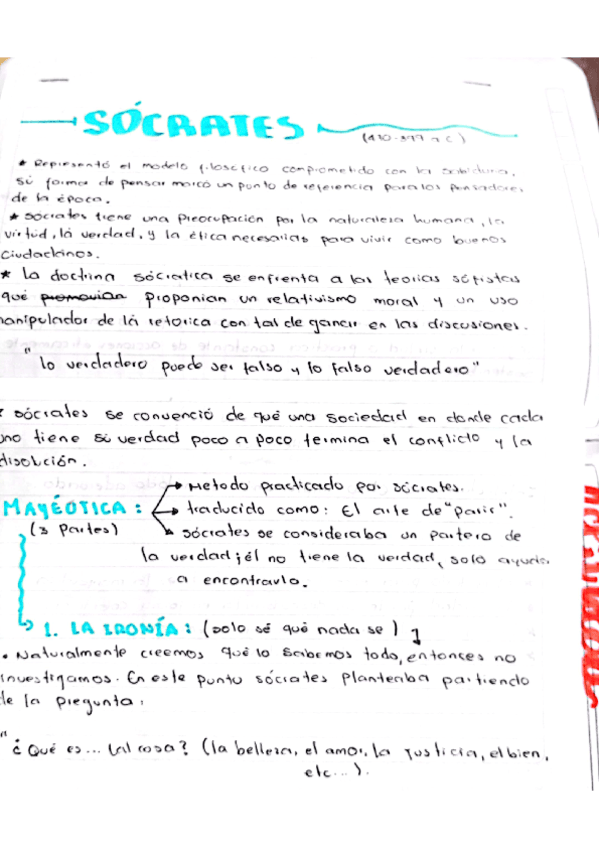 SÓCRATES
* Representó el modelo filosófico comprometido con la sabiduria,
su forma de pensar marcó un punto de referencia para los pensadores
de la época.
* Sócrates tiene una preocupación por la naturaleza humana, la
virtud, la verdad, y la ética necesarias para vivir como buenos
ciudadanos.
* La doctrina sócratica se enfrenta a las teorias sófistas
qué promovian proponian un relativismo moral y un uso
manipulador de lá retorica con tal de ganar en las discusiones.
"lo verdadero puede ser falso y lo falso verdadero"
* sócrates se convenció de qué una sociedad en donde cada
uno tiene sú verdad poco a poco termina el conflicto y la
disolución.
MAYÉOTICA:
(3 partes)
→ Metodo practicado por sócrates.
→ traducido como: El arte de "parir".
→ sócrates se consideraba un partero de
la verdad; él no tiene la verdad, solo ayuda
a encontrarla.
1. LA IRONÍA: (solo sé qué nada se)
• Naturalmente creemos qué lo sabemos todo, entonces no
investigamos. En este punto sócrates planteaba partiendo
de la pregunta:
"¿Qué es... tal cosa? (la belleza, el amor, la justicia, el bien,
etc...).